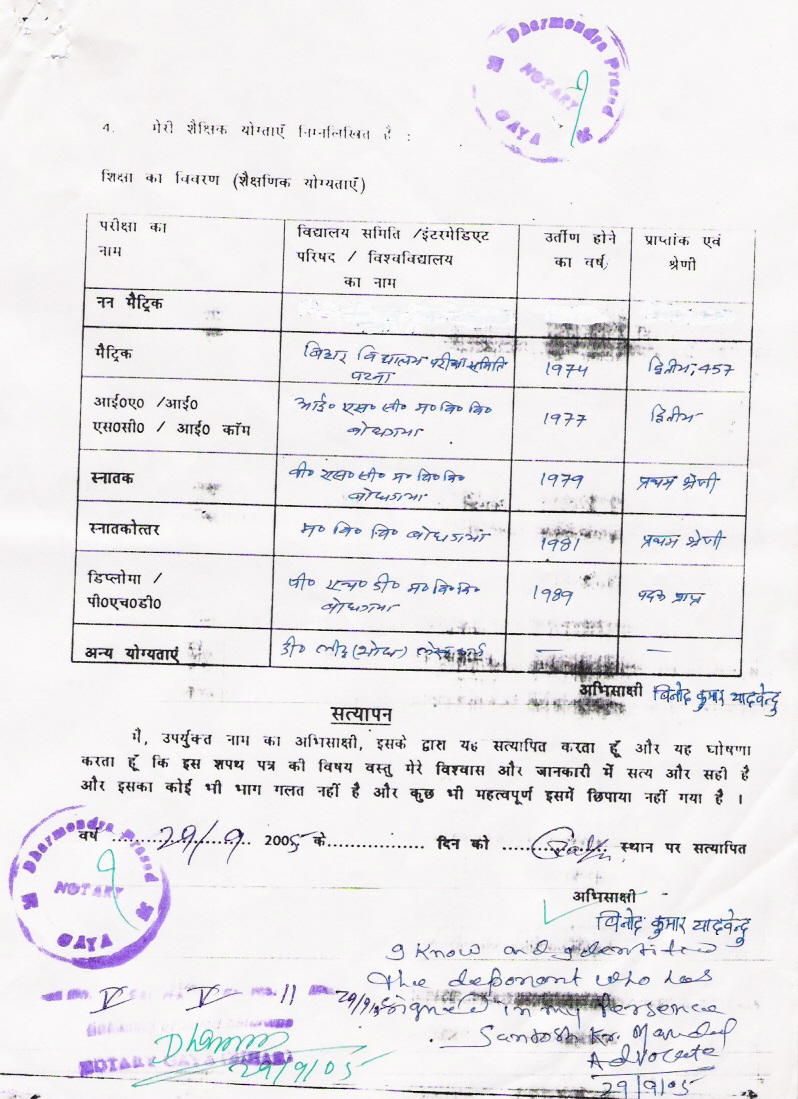 Dharmendra Prasad
NOTARY
GAYA
4. मेरी शैक्षिक योग्ताएँ निम्नलिखित है :
शिक्षा का विवरण (शैक्षणिक योग्यताएँ)
परीक्षा का नाम
विद्यालय समिति /इंटरमेडिएट परिषद / विश्वविद्यालय का नाम
उर्तीण होने का वर्ष
प्राप्तांक एवं श्रेणी
नन मैट्रिक
मैट्रिक बिहार विद्यालय परीक्षा समिति पटना 1974 द्वितीय, 457
आई0ए0 /आई0 एस0सी0 / आई0 कॉम आई० एस० सी० म० वि० वि० बोधगया 1977 द्वितीय
स्नातक बी० एस० सी० म० वि० वि० बोधगया 1979 प्रथम श्रेणी
स्नातकोत्तर म० वि० वि० बोधगया 1981 प्रथम श्रेणी
डिप्लोमा / पी0एच0डी0 पी० एच० डी० म० वि० वि० बोधगया 1989 पदक प्राप्त
अन्य योग्यताएं डी० लीट् (शोध) — —
अभिसाक्षी बिनोद कुमार यादवेन्दु
सत्यापन
मै, उपर्युक्त नाम का अभिसाक्षी, इसके द्वारा यह सत्यापित करता हूँ और यह घोषणा
करता हूँ कि इस शपथ पत्र की विषय वस्तु मेरे विश्वास और जानकारी में सत्य और सही है
और इसका कोई भी भाग गलत नहीं है और कुछ भी महत्वपूर्ण इसमें छिपाया नहीं गया है ।
वर्ष ....29/9.... 2005 के................. दिन को ................. स्थान पर सत्यापित
Dharmendra Prasad
NOTARY
GAYA
अभिसाक्षी
बिनोद कुमार यादवेन्दु
I know and identified
the deponent who has
signed in my Persence
Santosh Kr. Mandal
Advocate
29/9/05
No. 11
29/9/05
NOTARY GAYA (BIHAR)
29/9/05